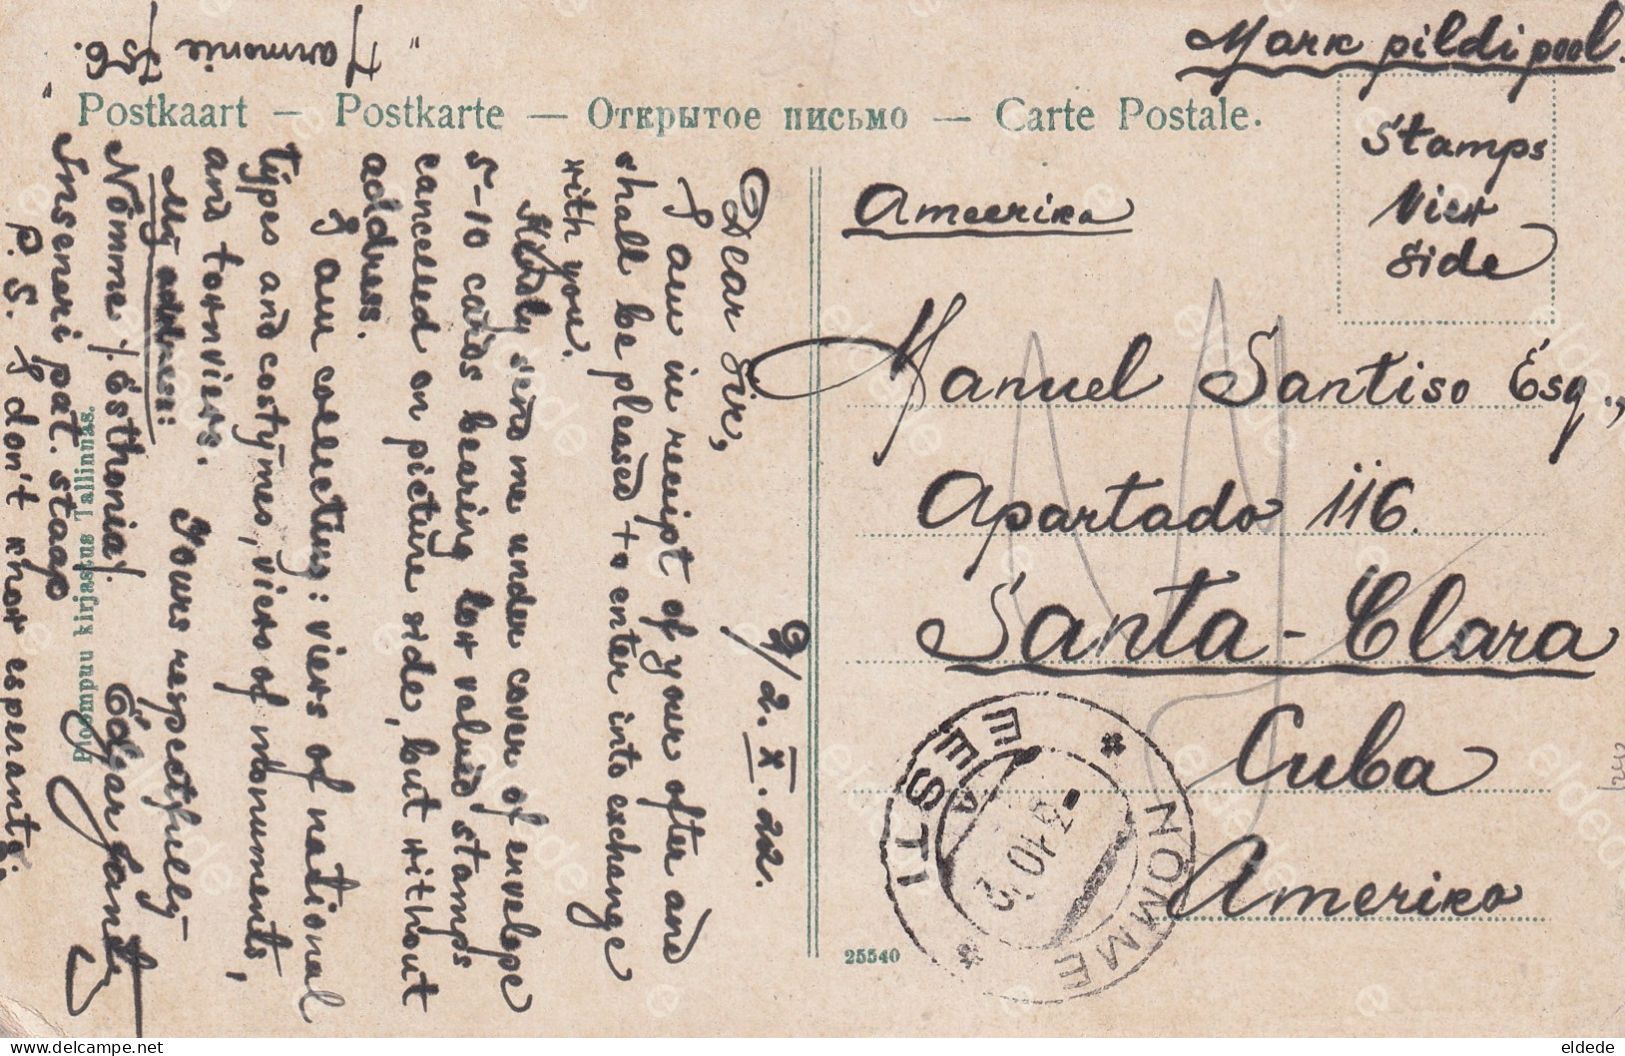 Mark pildi pool.
"Harmonie"
756.
Postkaart — Postkarte — Открытое письмо — Carte Postale.
Stamps
view
side
Ameerika
Manuel Santiso Esq.,
Apartado 116.
Santa-Clara
Cuba
Amerika
EESTI
NÕMME
A
-5.10.22
25540
9/2.X.22.
Dear Sir,
I am in receipt of your ofter and
shall be pleased to enter into exchange
with you.
Kindly send me under cover of envelope
5-10 cards bearing low valued stamps
cancelled on picture side, but without
address.
I am collecting: views of national
types and costymes, views of monuments,
and tornviews. Yours respectfully
My address: Edgar
Nõmme /Esthonia/.
Inseneri pat. staap
P.S. I don't know esperanto.
Ploompuu kirjastus Tallinnas.
eldede